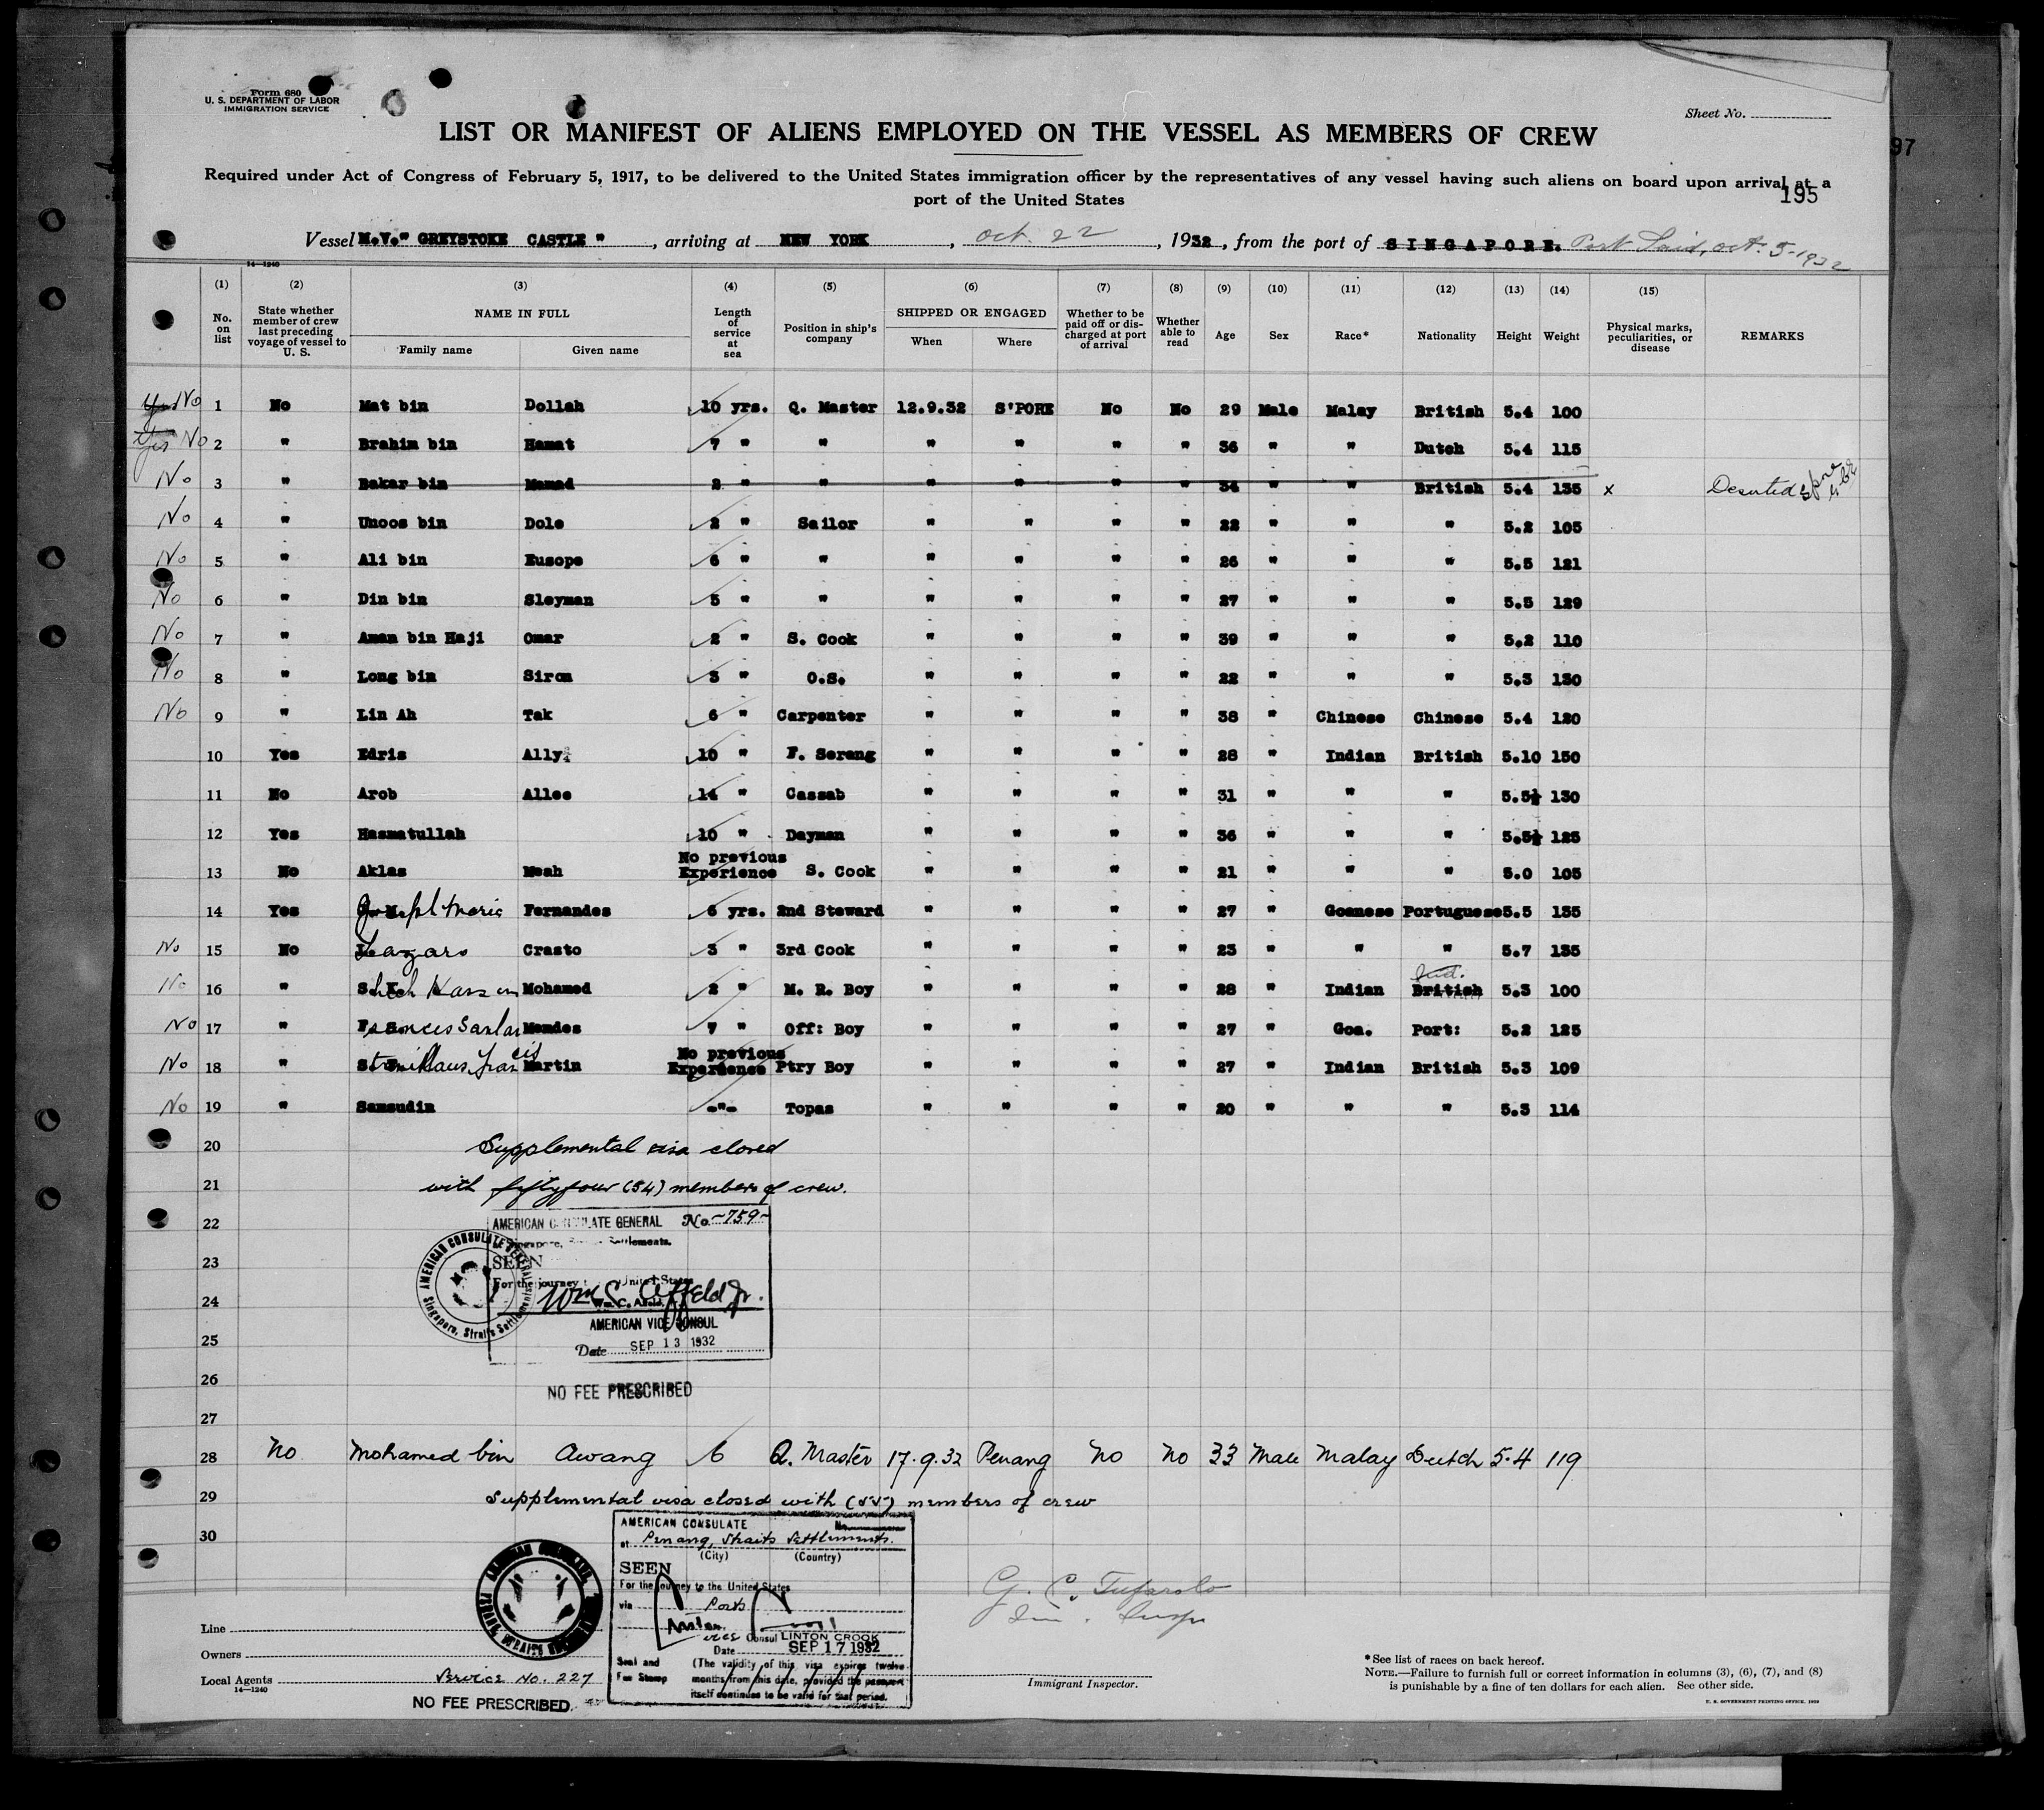 Form 680
U. S. DEPARTMENT OF LABOR
IMMIGRATION SERVICE
Sheet No.
LIST OR MANIFEST OF ALIENS EMPLOYED ON THE VESSEL AS MEMBERS OF CREW
97
Required under Act of Congress of February 5, 1917, to be delivered to the United States immigration officer by the representatives of any vessel having such aliens on board upon arrival at a
port of the United States
195
Vessel M.V." GREYSTOKE CASTLE ", arriving at NEW YORK, Oct. 22, 1932, from the port of SINGAPORE. Port Said, Oct. 5-1932
14-1240
(1) No. on list (2) State whether member of crew last preceding voyage of vessel to U. S. (3) NAME IN FULL Family name Given name (4) Length of service at sea (5) Position in ship's company (6) SHIPPED OR ENGAGED When Where (7) Whether to be paid off or discharged at port of arrival (8) Whether able to read (9) Age (10) Sex (11) Race* (12) Nationality (13) Height (14) Weight (15) Physical marks, peculiarities, or disease REMARKS
Yes No 1 No Mat bin Dollah 10 yrs. Q. Master 12.9.32 S'PORE No No 29 Male Malay British 5.4 100
Yes No 2 " Brahim bin Hamat 7 " " " " " " 36 " " Dutch 5.4 115
No 3 " Bakar bin Mamad 2 " " " " " " 34 " " British 5.4 135 x Deserted
No 4 " Unoos bin Dole 2 " Sailor " " " " 22 " " " 5.2 105
No 5 " Ali bin Eusope 6 " " " " " " 26 " " " 5.5 121
No 6 " Din bin Sleyman 5 " " " " " " 27 " " " 5.5 129
No 7 " Aman bin Haji Omar 2 " S. Cook " " " " 39 " " " 5.2 110
No 8 " Long bin Siron 3 " O.S. " " " " 22 " " " 5.3 130
No 9 " Lin Ah Tak 6 " Carpenter " " " " 38 " Chinese Chinese 5.4 120
10 Yes Edris Ally 10 " F. Serang " " " " 28 " Indian British 5.10 150
11 No Arob Allee 14 " Cassab " " " " 31 " " " 5.5½ 130
12 Yes Hasmatullah 10 " Dayman " " " " 36 " " " 5.5½ 125
13 No Aklas Meah No previous Experience S. Cook " " " " 21 " " " 5.0 105
14 Yes Joseph Maria Fernandes 6 yrs. 2nd Steward " " " " 27 " Goanese Portuguese 5.5 135
No 15 No Lazaro Crasto 3 " 3rd Cook " " " " 23 " " " 5.7 135
No 16 " Mohamed 2 " M. R. Boy " " " " 28 " Indian Ind. British 5.3 100
No 17 " Mendes 7 " Off: Boy " " " " 27 " Goa. Port: 5.2 125
No 18 " Martin No previous Experience Ptry Boy " " " " 27 " Indian British 5.3 109
No 19 " Samsudin -"- Topas " " " " 20 " " " 5.3 114
20 Supplemental visa closed
21 with fiftyfour (54) members of crew.
22 AMERICAN CONSULATE GENERAL No. -759-
Singapore, Settlements.
23 SEEN
For the journey United States
AMERICAN CONSULATE GENERAL Singapore, Straits Settlements
24 Wm C. Affeld Jr.
Wm. C. Affeld,
AMERICAN VICE CONSUL
25 Date SEP 13 1932
26 NO FEE PRESCRIBED
27
28 No Mohamed bin Awang 6 Q. Master 17.9.32 Penang No No 33 Male Malay Dutch 5.4 119
29 Supplemental visa closed with (55) members of crew
30 AMERICAN CONSULATE No.
at Penang, Straits Settlements.
(City) (Country)
SEEN
For the journey to the United States
via Ports
Vice Consul LINTON CROOK
Date SEP 17 1932
Seal and Fee Stamp (The validity of this visa expires twelve months from this date, provided the passport itself continues to be valid for that period.
G. C.
Line
Owners
Local Agents Service No. 227
14-1240
NO FEE PRESCRIBED.
Immigrant Inspector.
*See list of races on back hereof.
NOTE.—Failure to furnish full or correct information in columns (3), (6), (7), and (8)
is punishable by a fine of ten dollars for each alien. See other side.
U. S. GOVERNMENT PRINTING OFFICE. 1929